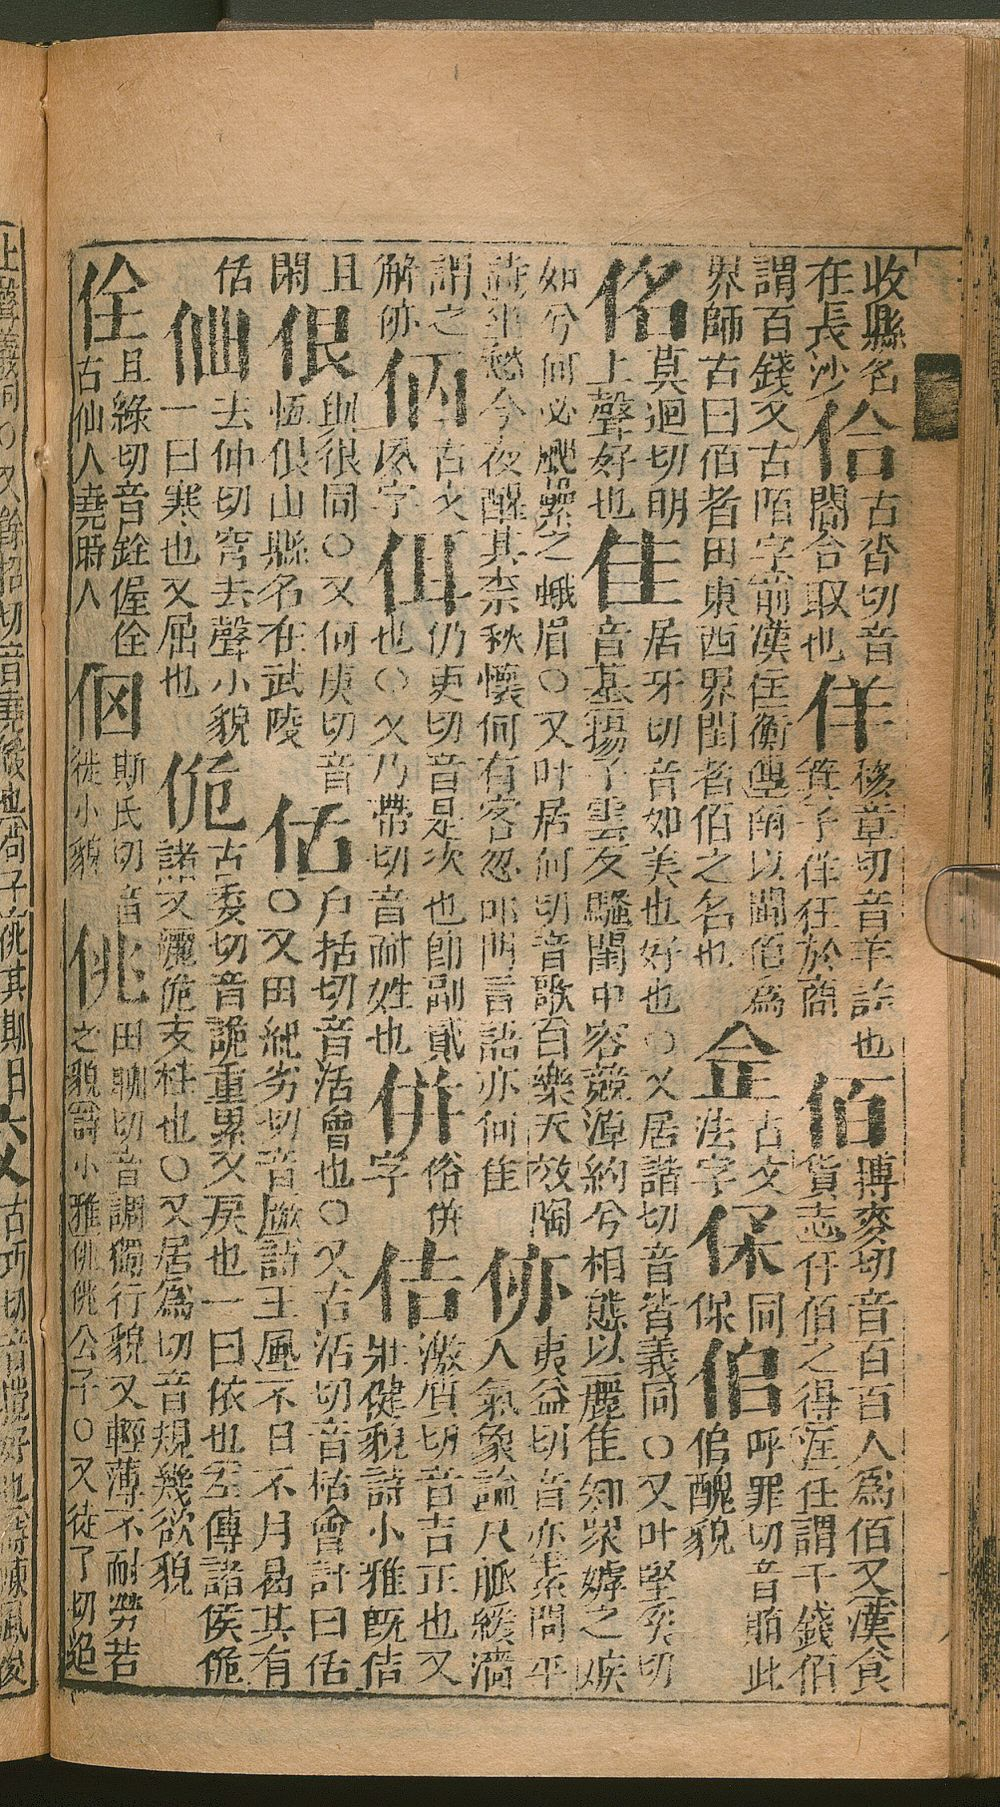 收縣名
在長沙
佮
古沓切音
閤合取也
佯
移章切音羊詐也
箕子佯狂於商
佰
搏麥切音百百人為佰又漢食
貨志仟佰之得涯注謂千錢佰
謂百錢又古陌字前漢匡衡傳南以閩佰為
界師古曰佰者田東西界閩者佰之名也
佱
古文
法字
同
保
呼罪切音賄此
醜貌
佲
莫迥切明
上聲好也
佳
居牙切音如美也好也○又居諧切音皆義同○又叶堅奚切
音基揚子雲反騷閨中容競淖約兮相態以麗佳知眾嫮之嫉
如兮何必颺纍之蛾眉○又叶居何切音歌百樂天效陶
詩坐愁今夜醒其柰秋懷何有客忽叩門言語亦何佳
㑊
夷益切音亦素問平
人氣象論尺脈緩濇
謂之
解㑊
古文
夙字
佴
仍吏切音是次也即副貳
也○又乃帶切音耐姓也
併
俗倂
字
佶
激質切音吉正也又
壯健貌詩小雅既佶
且
閑
佷
與很同○又何庚切音
恆佷山縣名在武陵
佸
戶括切音活會也○又古活切音栝會計曰佸
○又紀劣切音厥詩王風不日不月曷其有
佸
去仲切穹去聲小貌
一曰寒也又屈也
佹
古委切音詭重累又戾也一曰依也左傳諸侯佹
諸又灑佹支柱也○又居為切音規幾欲貌
佺
且緣切音銓偓佺
古仙人堯時人
斯氏切音
徙小貌
佻
田聊切音調獨行貌又輕薄不耐勞苦
之貌詩小雅佻佻公子○又徒了切迢
上聲義同○又餘招切音堯緩也荀子佻其期日
古巧切音
好也詩陳風佼